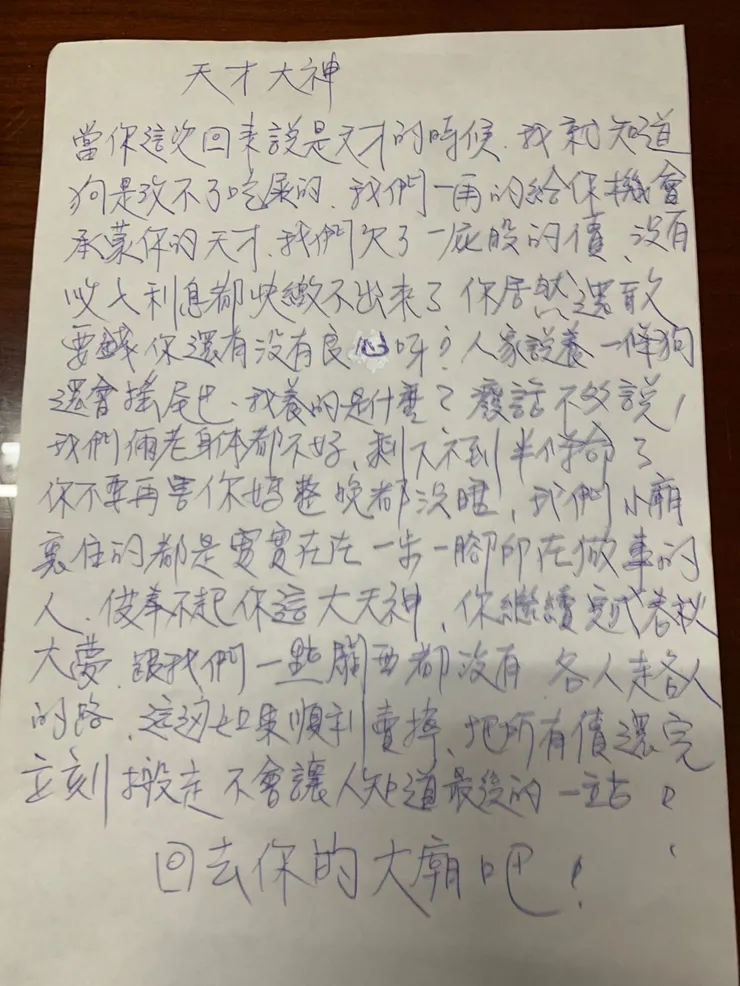 天才大神
當你這次回來說是天才的時候，我就知道
狗是改不了吃屎的，我們一再的給你機會
承蒙你的天才，我們欠了一屁股的債，沒有
收入利息都快繳不出來了你居然還敢
要錢你還有沒有良心呀？人家說養一條狗
還會搖尾巴，我養的是什麼？廢話不多說，
我們倆老身体都不好，剩下不到半條命了
你不要再害你媽整晚都沒睡，我們小廟
裏住的都是實實在在一步一腳印在做事的
人，供奉不起你這大天神，你繼續完成春秋
大夢，跟我們一點關西都沒有，各人走各人
的路，這边如果順利賣掉，把所有債還完
立刻搬走不會讓人知道最後的一站！
回去你的大廟吧！